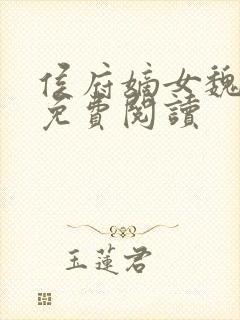 侯府嫡女魏
免費閱讀
玉蓮君